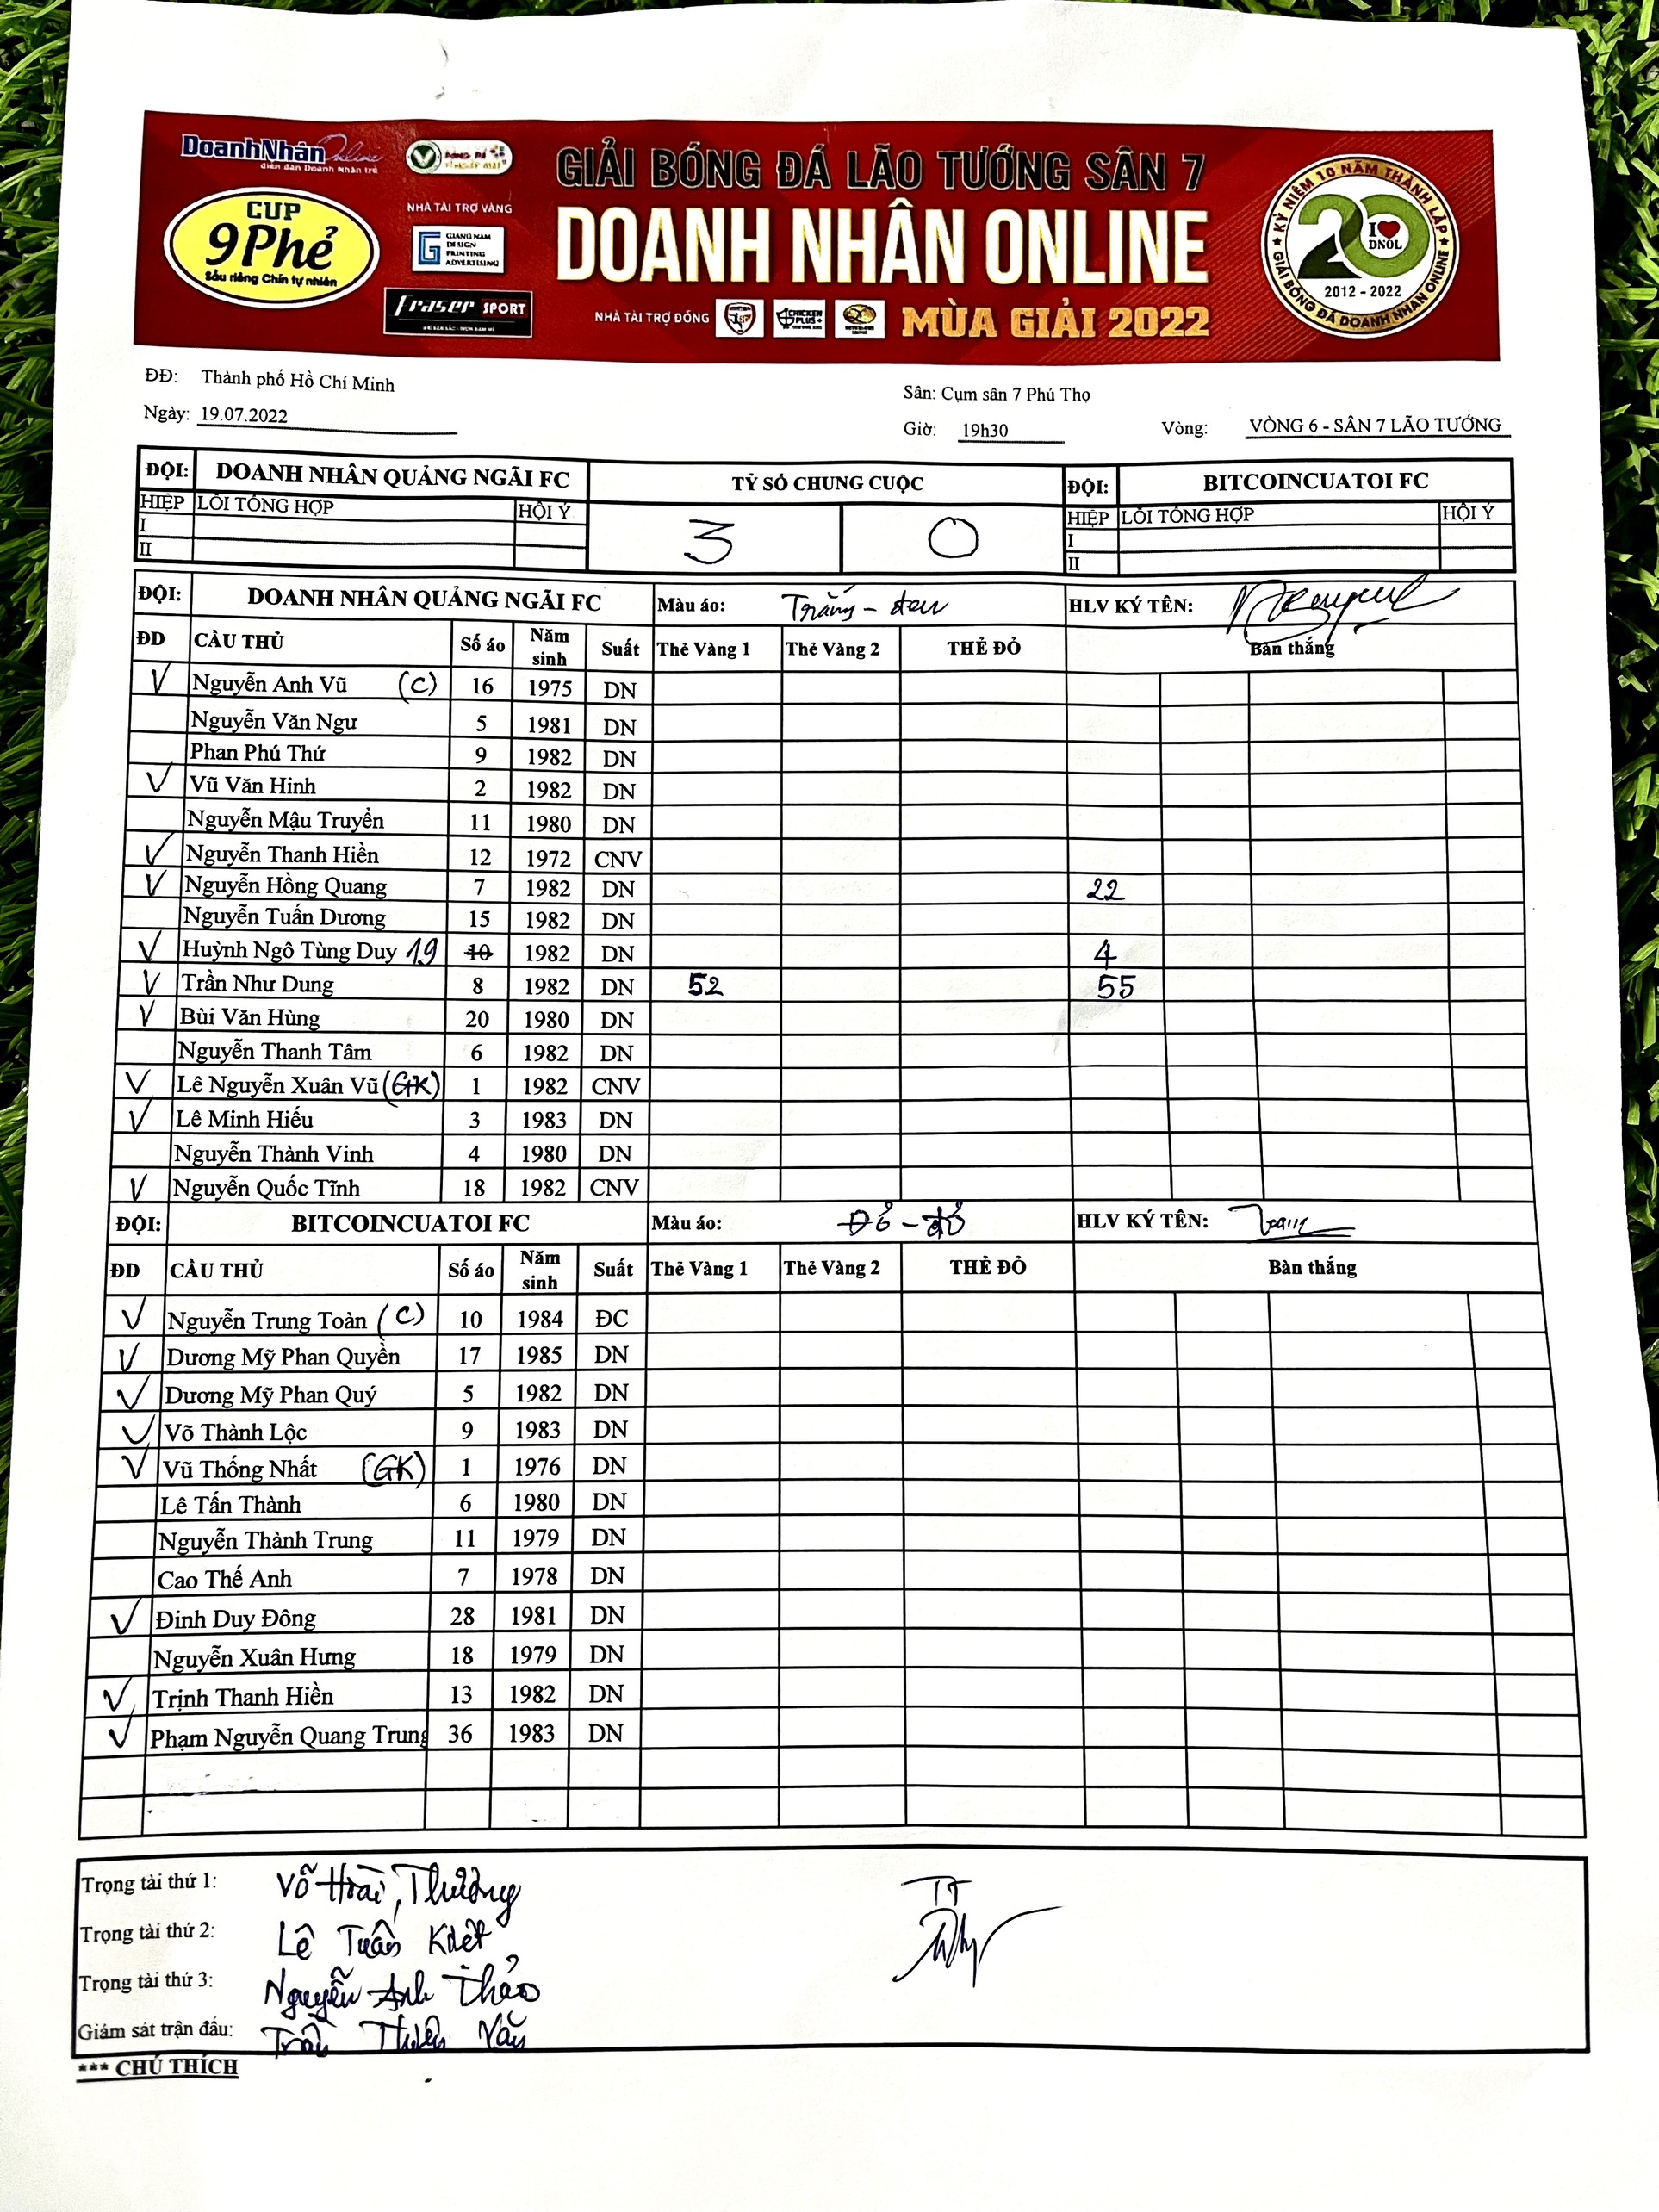 DoanhNhân Online
diễn đàn Doanh Nhân trẻ
CUP
9Phẻ
Sầu riêng Chín tự nhiên
NHÀ TÀI TRỢ VÀNG
GIANG NAM
DESIGN
PRINTING
ADVERTISING
fraser SPORT
GIẢI BÓNG ĐÁ LÃO TƯỚNG SÂN 7
DOANH NHÂN ONLINE
NHÀ TÀI TRỢ ĐỒNG
CHICKEN PLUS+
MÙA GIẢI 2022
KỶ NIỆM 10 NĂM THÀNH LẬP
I DNOL
2012 - 2022
GIẢI BÓNG ĐÁ DOANH NHÂN ONLINE
ĐĐ: Thành phố Hồ Chí Minh
Sân: Cụm sân 7 Phú Thọ
Ngày: 19.07.2022
Giờ: 19h30 Vòng: VÒNG 6 - SÂN 7 LÃO TƯỚNG
ĐỘI: DOANH NHÂN QUẢNG NGÃI FC TỶ SỐ CHUNG CUỘC ĐỘI: BITCOINCUATOI FC
HIỆP LỖI TỔNG HỢP HỘI Ý 3 0 HIỆP LỖI TỔNG HỢP HỘI Ý
I I
II II
ĐỘI: DOANH NHÂN QUẢNG NGÃI FC Màu áo: Trắng - đen HLV KÝ TÊN:
ĐD CẦU THỦ Số áo Năm sinh Suất Thẻ Vàng 1 Thẻ Vàng 2 THẺ ĐỎ Bàn thắng
V Nguyễn Anh Vũ (C) 16 1975 DN
Nguyễn Văn Ngư 5 1981 DN
Phan Phú Thứ 9 1982 DN
V Vũ Văn Hinh 2 1982 DN
Nguyễn Mậu Truyển 11 1980 DN
V Nguyễn Thanh Hiền 12 1972 CNV
V Nguyễn Hồng Quang 7 1982 DN 22
Nguyễn Tuấn Dương 15 1982 DN
V Huỳnh Ngô Tùng Duy 19 10 1982 DN 4
V Trần Như Dung 8 1982 DN 52 55
V Bùi Văn Hùng 20 1980 DN
Nguyễn Thanh Tâm 6 1982 DN
V Lê Nguyễn Xuân Vũ (GK) 1 1982 CNV
V Lê Minh Hiếu 3 1983 DN
Nguyễn Thành Vinh 4 1980 DN
V Nguyễn Quốc Tĩnh 18 1982 CNV
ĐỘI: BITCOINCUATOI FC Màu áo: Đỏ - đỏ HLV KÝ TÊN:
ĐD CẦU THỦ Số áo Năm sinh Suất Thẻ Vàng 1 Thẻ Vàng 2 THẺ ĐỎ Bàn thắng
V Nguyễn Trung Toàn (C) 10 1984 ĐC
V Dương Mỹ Phan Quyền 17 1985 DN
V Dương Mỹ Phan Quý 5 1982 DN
V Võ Thành Lộc 9 1983 DN
V Vũ Thống Nhất (GK) 1 1976 DN
Lê Tấn Thành 6 1980 DN
Nguyễn Thành Trung 11 1979 DN
Cao Thế Anh 7 1978 DN
V Đinh Duy Đông 28 1981 DN
Nguyễn Xuân Hưng 18 1979 DN
V Trịnh Thanh Hiền 13 1982 DN
V Phạm Nguyễn Quang Trung 36 1983 DN
Trọng tài thứ 1: Võ Hoài Thương TT
Trọng tài thứ 2: Lê Tuấn Kiệt
Trọng tài thứ 3: Nguyễn Anh Thảo
Giám sát trận đấu: Trần Thiện Văn
*** CHÚ THÍCH